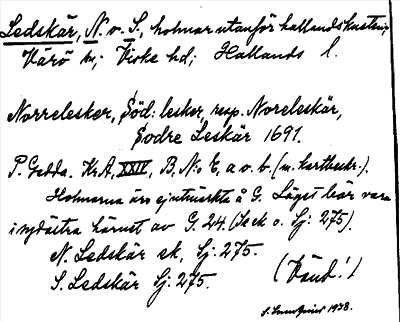 Ledskär, N. o. S., holmar utanför hallandskusten,
Värö sn; Viske hd; Hallands l.
Norrelesker, Söd: lesker, resp. Noreleskär,
Södre Leskär 1691.
P. Gedda. Kr.A, XXIV, B. N:o 6, a o. b. (m. kartbeskr.).
Holmarna äro ej utmärkta å G. Läget bör vara
i sydöstra hörnet av G. 24. (Se ek o. Sj: 275).
N. Ledskär ek, Sj: 275.
S. Ledskär Sj: 275.
(Vänd!)
1938.